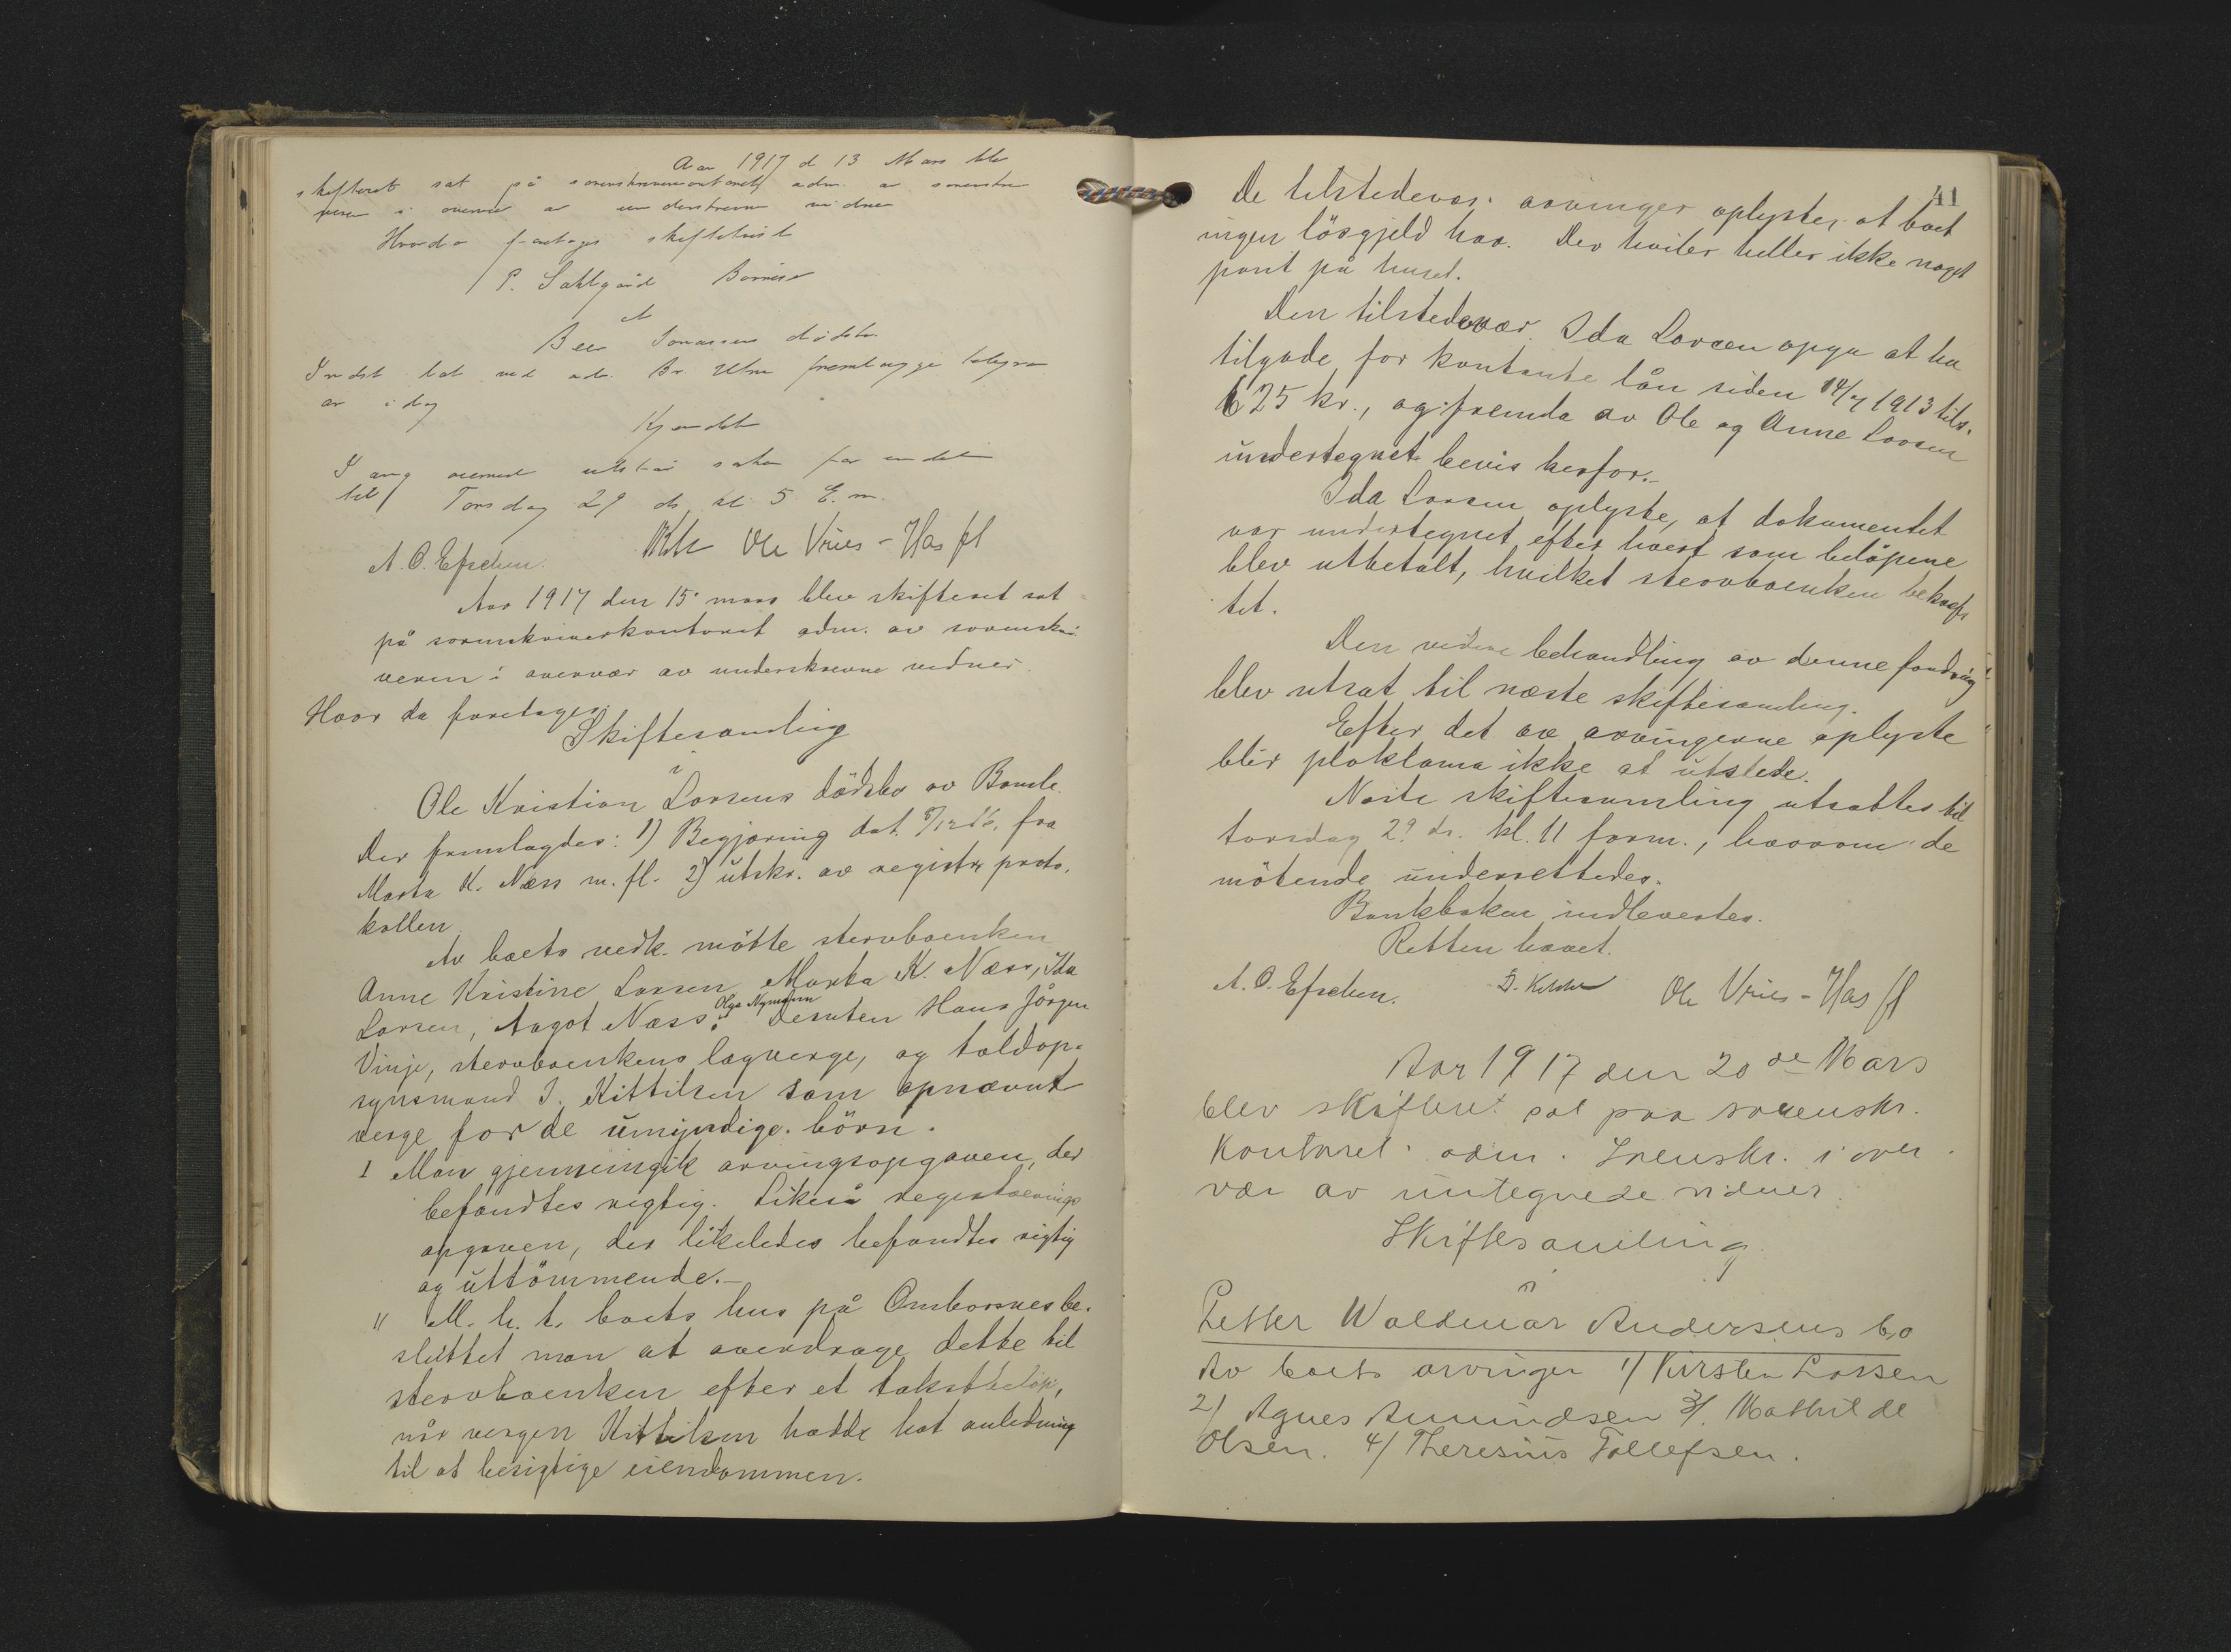 Aar 1917 d 13 Mars blev
skifteret sat på sorenskriverkontoret adm. av sorenskri
veren i overvær av underskrevne vidner
Hvorda foretages skifte
P. Sahlgård
Jonassens dødsbo
I ret ved fremlægge telegram
av idag
Kjendt
utstår saken
til Torsdag 29 ds kl 5 E. m.
A. O. Efschen. Ole Vries-Has fl
Aar 1917 den 15. mars blev skifteret sat
på sorenskriverkontoret adm. av sorenskri
veren i overvær av underskrevne vidner.
Hvor da foretages
Skiftesamling
i
Ole Kristian Larsens dödsbo av Bamle.
Der fremlagdes: 1) Begjæring dat. fra
Marta K. Næss m. fl. 2) utskr. av registr. proto,
kollen.
Av boets vedk. mötte stervboenken
Anne Kristine Larsen, Marta K. Næss, Ida
Larsen, Aagot Næss. Olga Nymann Desuten Hans Jörgen
Vinje, stervboenkens lagverge, og toldop-
synsmand J. Kittilsen som opnævnt
verge for de umyndige. börn.
1 Man gjennemgik arvingsopgaven, der
befandtes rigtig. Likeså registrerings
opgaven, der likeledes befandtes rigtig
og uttömmende.-
" M. h. t. boets hus på Omborsnes be-
sluttet man at overdrage dette til
stervboenken efter et takstbelöp,
når vergen Kittilsen hadde hat anledning
til at besigtige eiendommen.
41
De tilstedevær. arvinger oplyste, at boet
ingen lösgjeld har. Der hviler heller ikke noget
pant på huset.
Den tilstedevær. Ida Larsen opga at ha
tilgode for kontante lån siden 14/7 1913 tils.
625 kr., og fremla av Ole og Anne Larsen
undertegnet bevis herfor.-
Ida Larsen oplyste, at dokumentet
var undertegnet efter hvert som belöpene
blev utbetalt, hvilket stervboenken bekræf
tet.
Den videre behandling av denne fordring
blev utsat til næste skiftesamling.
Efter det av arvingerne oplyste
blir ploklama ikke at utstede.
Næste skiftesamling utsattes til
torsdag 29 ds. kl. 11 form., hvorom de
mötende underrettedes.
Bankboken indlevertes.
Retten hævet.
A. O. Efschen. Ole Vries-Has fl
Aar 1917 den 20de Mars
blev skifteret sat paa sorenskr.
kontoret adm. Sorenskr. i over
vær av undtegnede vidner.
Skiftesamling
i
Petter Waldemar Andersens bo
Av boets arvinger 1/ Kirsten Larsen
2/ Agnes Amundsen 3/. Mathilde
Olsen. 4/ Theresius Tollefsen.